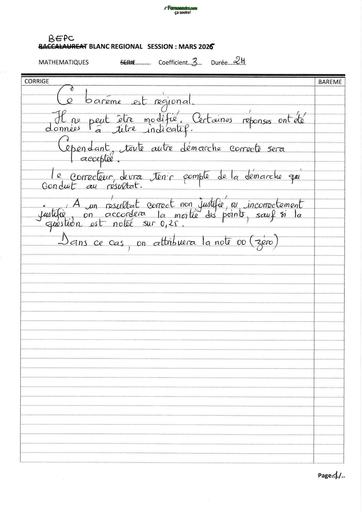 Fomesoutra.com
ça soutra!
BEPC
BACCALAUREAT BLANC REGIONAL SESSION : MARS 2026
MATHEMATIQUES SERIE Coefficient 3 Durée 2H
CORRIGE BAREME
Ce barème est régional.
Il ne peut être modifié. Certaines réponses ont été
données à titre indicatif.
Cependant, toute autre démarche correcte sera
acceptée.
Le correcteur devra tenir compte de la démarche qui
conduit au résultat.
. A un résultat correct non justifié, ou incorrectement
justifié, on accordera la moitié des points, sauf si la
question est notée sur 0,25.
Dans ce cas, on attribuera la note 00 (zéro)
Page 1/..